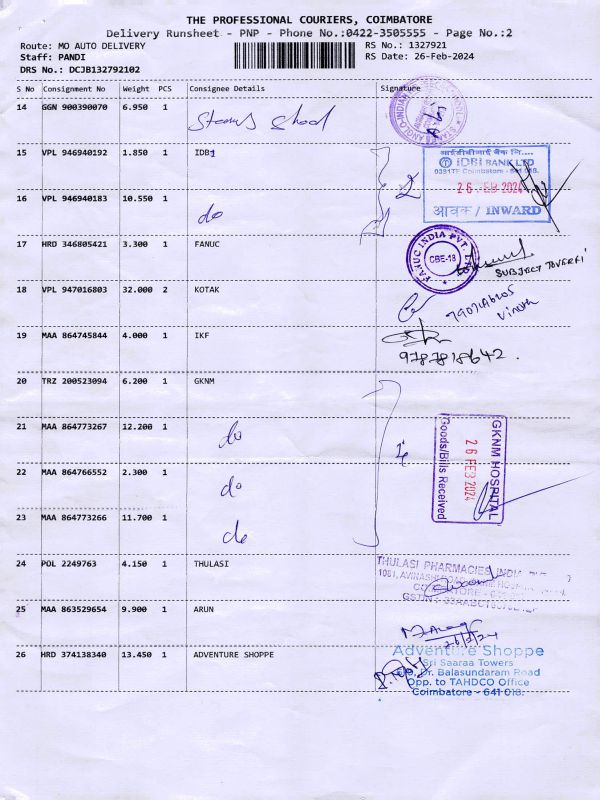 THE PROFESSIONAL COURIERS, COIMBATORE
Delivery Runsheet - PNP - Phone No.:0422-3505555 - Page No.:2
Route: MO AUTO DELIVERY
RS No.: 1327921
Staff: PANDI
RS Date: 26-Feb-2024
DRS No.: DCJB132792102
S No Consignment No Weight PCS Consignee Details Signature
14 GGN 900390070 6.950 1
15 VPL 946940192 1.850 1 IDB1
आईडीबीआई बैंक लि....
IDBI BANK LTD
Coimbatore
26 FEB 2024
आवक / INWARD
16 VPL 946940183 10.550 1 do
2
17 HRD 346805421 3.300 1 FANUC
FANUC INDIA PVT. LTD
CBE-18
SUBJECT TOVERKI
18 VPL 947016803 32.000 2 KOTAK
Vinoth
19 MAA 864745844 4.000 1 IKF
9787818642.
20 TRZ 200523094 6.200 1 GKNM
21 MAA 864773267 12.200 1 do
4
GKNM HOSPITAL
26 FEB 2024
Goods/Bills Received
22 MAA 864766552 2.300 1 do
23 MAA 864773266 11.700 1 do
24 POL 2249763 4.150 1 THULASI
THULASI PHARMACIES INDIA
25 MAA 863529654 9.900 1 ARUN
26/2/24
26 HRD 374138340 13.450 1 ADVENTURE SHOPPE
Adventure Shoppe
Sri Saaraa Towers
Dr. Balasundaram Road
Opp. to TAHDCO Office
Coimbatore - 641 018.